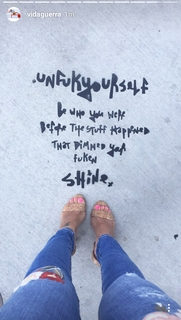 vidaguerra 11h
.UNFUKYOURSELF
Be who you were
Before The STuff HAPPENED
THAT DiMMED YOR
FUKEN
SHiNE.